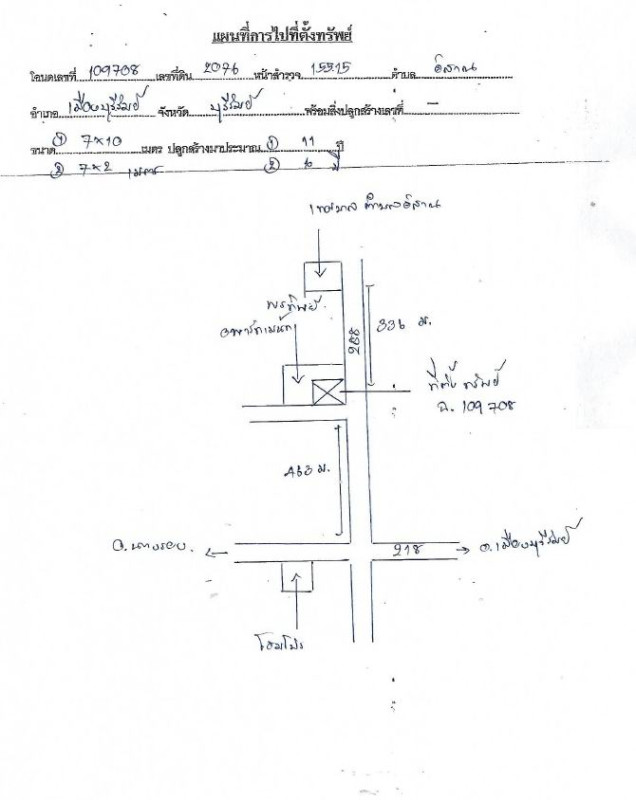 แผนที่การไปที่ตั้งทรัพย์
โฉนดเลขที่ 109708 เลขที่ดิน 2076 หน้าสำรวจ 15515 ตำบล อิสาณ
อำเภอ เมืองบุรีรัมย์ จังหวัด บุรีรัมย์ พร้อมสิ่งปลูกสร้างเลขที่ -
ขนาด ① 7×10 เมตร ปลูกสร้างมาประมาณ ① 11 ปี
② 7×2 เมตร ② 6 ปี
เทศบาล ตำบลอิสาณ
พรทิพย์
288
336 ม.
ที่ตั้ง ทรัพย์
ฉ. 109708
463 ม.
อ. นางรอง
218
อ. เมืองบุรีรัมย์
โฮมโปร